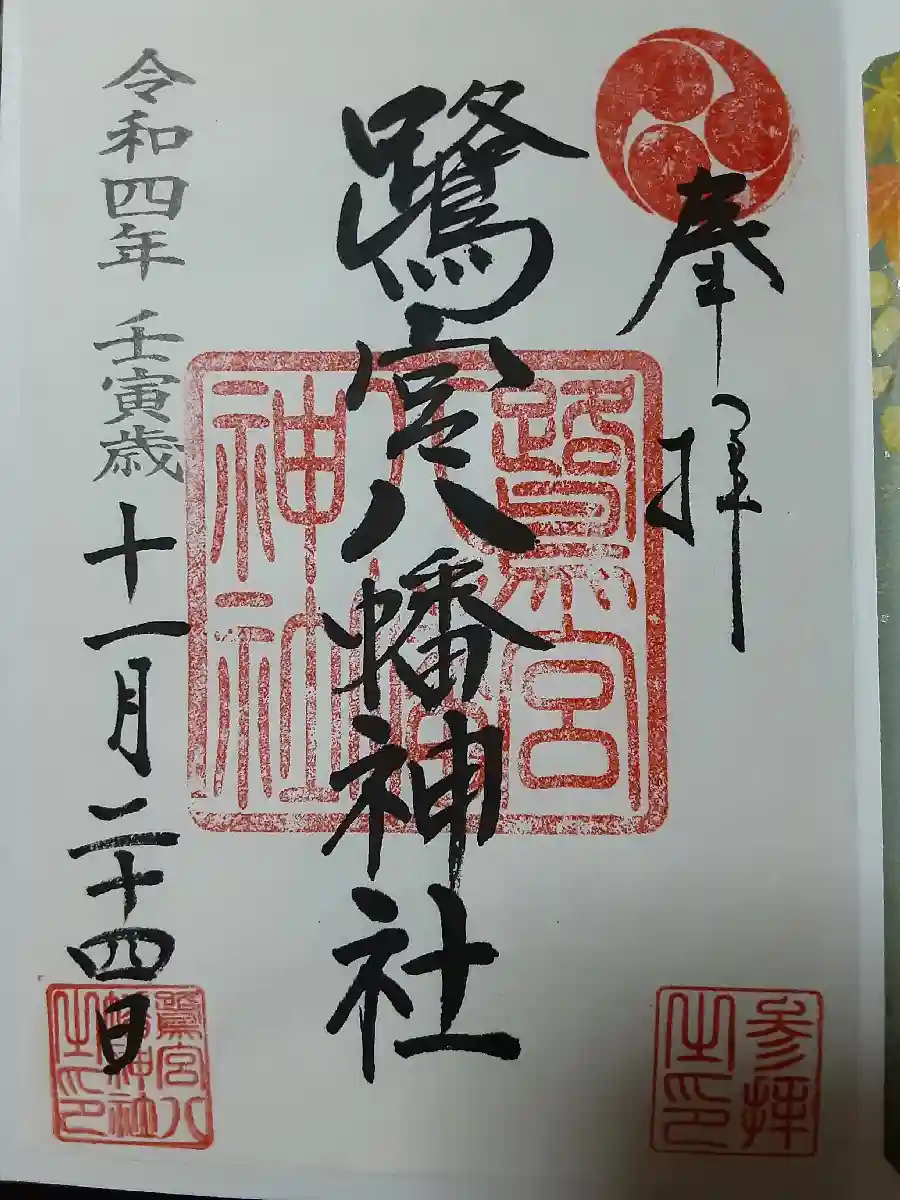 奉拝
鷺宮八幡神社
令和四年 壬寅歳 十一月二十四日
鷺宮
八幡
神社
参拝
之印
鷺宮八
幡神社
之印